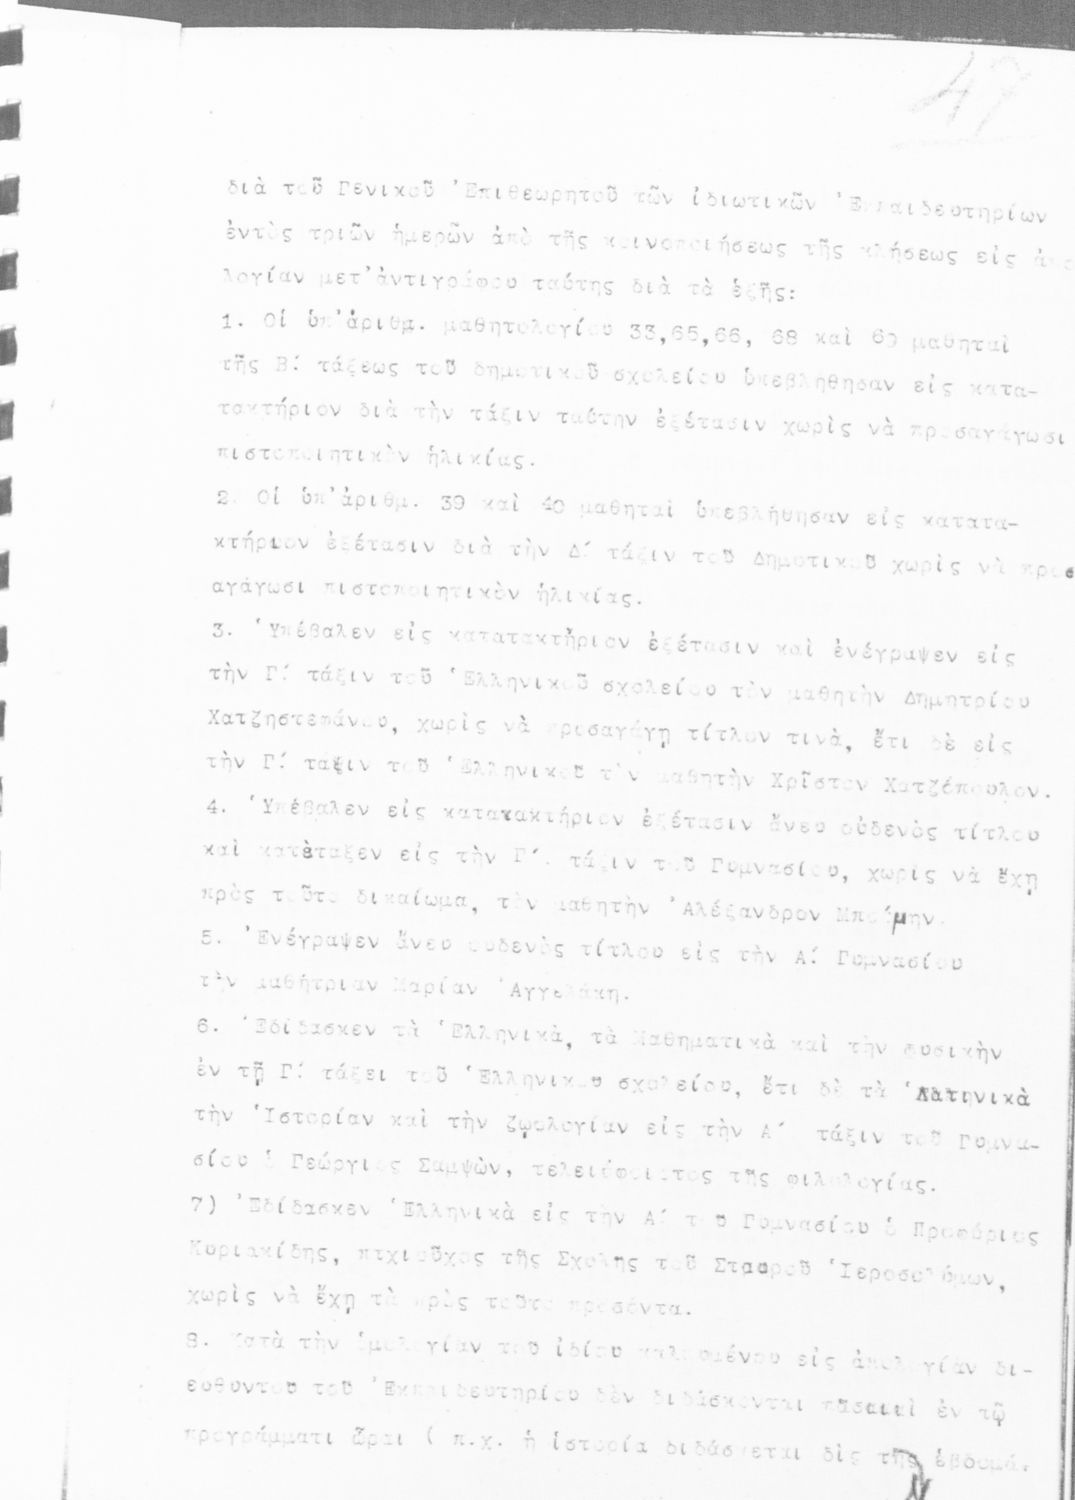 47
διὰ τοῦ Γενικοῦ Ἐπιθεωρητοῦ τῶν ἰδιωτικῶν Ἐκπαιδευτηρίων
ἐντὸς τριῶν ἡμερῶν ἀπὸ τῆς κοινοποιήσεως τῆς κλήσεως εἰς ἀπο
λογίαν μετ'ἀντιγράφου ταύτης διὰ τὰ ἑξῆς:
1. Οἱ ὑπ'ἀριθμ. μαθητολογίου 33,65,66, 68 καὶ 69 μαθηταὶ
τῆς Β΄ τάξεως τοῦ δημοτικοῦ σχολείου ὑπεβλήθησαν εἰς κατα-
τακτήριον διὰ τὴν τάξιν ταύτην ἐξέτασιν χωρὶς νὰ προσαγάγωσι
πιστοποιητικὸν ἡλικίας.
2. Οἱ ὑπ'ἀριθμ. 39 καὶ 40 μαθηταὶ ὑπεβλήθησαν εἰς κατατα-
κτήριον ἐξέτασιν διὰ τὴν Δ΄ τάξιν τοῦ Δημοτικοῦ χωρὶς νὰ προσ
αγάγωσι πιστοποιητικὸν ἡλικίας.
3. Ὑπέβαλεν εἰς κατατακτήριον ἐξέτασιν καὶ ἐνέγραψεν εἰς
τὴν Γ΄ τάξιν τοῦ Ἑλληνικοῦ σχολείου τὸν μαθητὴν Δημητρίου
Χατζηστεφάνου, χωρὶς νὰ προσαγάγῃ τίτλον τινὰ, ἔτι δὲ εἰς
τὴν Γ΄ τάξιν τοῦ Ἑλληνικοῦ τὸν μαθητὴν Χρῖστον Χατζόπουλον.
4. Ὑπέβαλεν εἰς κατατακτήριον ἐξέτασιν ἄνευ οὐδενὸς τίτλου
καὶ κατέταξεν εἰς τὴν Γ΄. τάξιν τοῦ Γυμνασίου, χωρὶς νὰ ἔχῃ
πρὸς τοῦτο δικαίωμα, τὸν μαθητὴν Ἀλέξανδρον
5. Ἐνέγραψεν ἄνευ οὐδενὸς τίτλου εἰς τὴν Α΄ Γυμνασίου
τὴν μαθήτριαν Μαρίαν Ἀγγελάκη.
6. Ἐδίδασκεν τὰ Ἑλληνικὰ, τὰ Μαθηματικὰ καὶ τὴν φυσικὴν
ἐν τῇ Γ΄ τάξει τοῦ Ἑλληνικοῦ σχολείου, ἔτι δὲ τὰ Λατινικὰ
τὴν Ἱστορίαν καὶ τὴν ζῳολογίαν εἰς τὴν Α΄ τάξιν τοῦ Γυμνα-
σίου ὁ Γεώργιος Σαμψὼν, τελειόφοιτος τῆς φιλολογίας.
7) Ἐδίδασκεν Ἑλληνικὰ εἰς τὴν Α΄ τοῦ Γυμνασίου ὁ Πορφύριος
Κυριακίδης, πτχιοῦχος τῆς Σχολῆς τοῦ Σταυροῦ Ἱεροσολύμων,
χωρὶς νὰ ἔχῃ τὰ πρὸς τοῦτο προσόντα.
8. Κατὰ τὴν ὁμολογίαν τοῦ ἰδίου καλουμένου εἰς ἀπολογίαν δι-
ευθυντοῦ τοῦ Ἐκπαιδευτηρίου δὲν διδάσκονται πᾶσαι αἱ ἐν τῷ
προγράμματι ὧραι ( π.χ. ἡ ἱστορία διδάσκεται δὶς τῆς ἑβδομά.